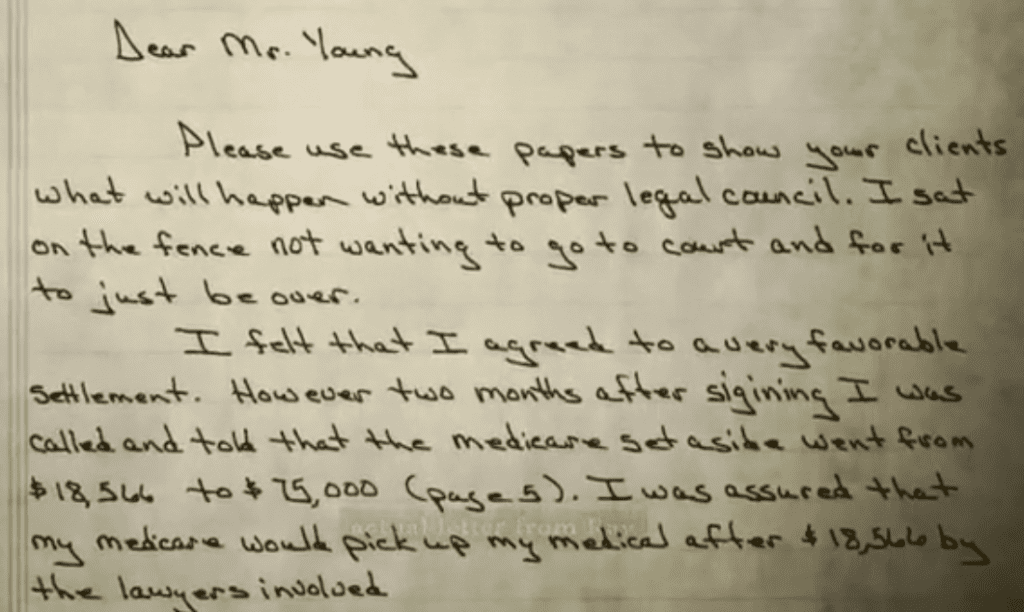 Dear Mr. Young
Please use these papers to show your clients
what will happen without proper legal council. I sat
on the fence not wanting to go to court and for it
to just be over.
I felt that I agreed to a very favorable
settlement. However two months after sigining I was
called and told that the medicare set aside went from
$18,566 to $75,000 (page 5). I was assured that
actual letter from
my medicare would pick up my medical after $18,566 by
the lawyers involved